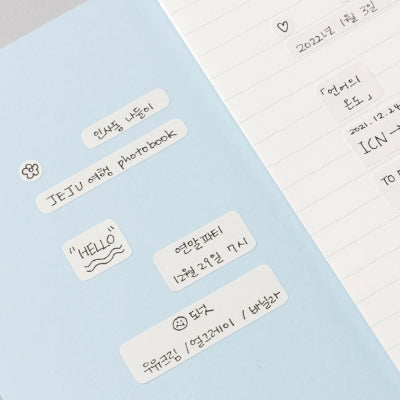 인사동 나들이
JEJU 여행 photobook
"HELLO"
연말파티
12월 29일 7시
도넛
우유크림 / 얼그레이 / 바닐라
2022년 1월 3일
「언어의
온도」
2021. 12. 24
ICN →
TO